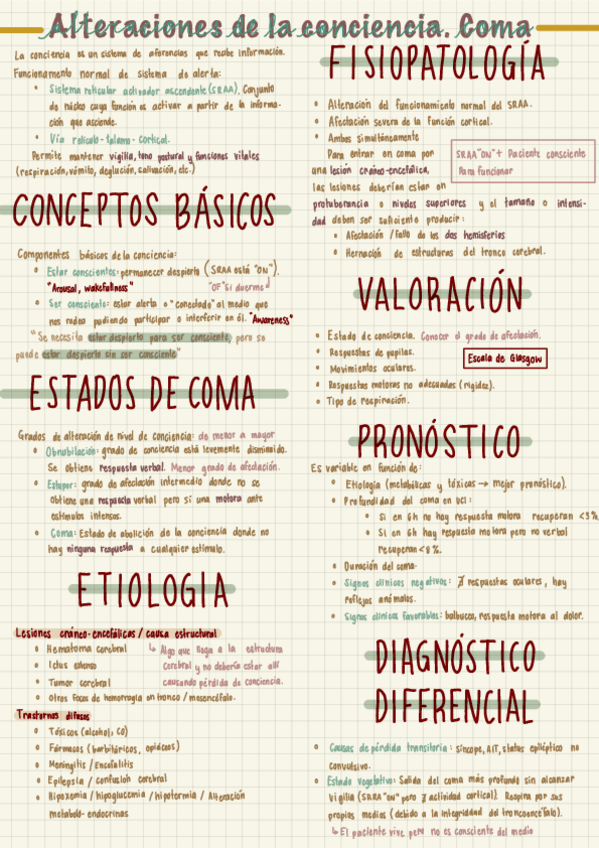 Alteraciones de la conciencia. Coma
La conciencia es un sistema de aferencias que recibe información.
Funcionamiento normal de sistema de alerta:
• Sistema reticular activador ascendente (SRAA). Conjunto
de núcleo cuya función es activar a partir de la informa-
ción que asciende.
• Vía retículo-tálamo-cortical.
Permite mantener vigilia, tono postural y funciones vitales
(respiración, vómito, deglución, salivación, etc.)
CONCEPTOS BÁSICOS
Componentes básicos de la conciencia:
• Estar conscientes: permanecer despierto (SRAA está "ON").
"Arousal, wakefulness" "OF" si duerme
• Ser consciente: estar alerta o "conectado" al medio que
nos rodea pudiendo participar o interferir en él. "Awareness"
"Se necesita estar despierto para ser consciente, pero se
puede estar despierto sin ser consciente"
ESTADOS DE COMA
Grados de alteración de nivel de conciencia: de menor a mayor
• Obnubilación: grado de conciencia está levemente disminuido.
Se obtiene respuesta verbal. Menor grado de afectación.
• Estupor: grado de afectación intermedio donde no se
obtiene una respuesta verbal pero sí una motora ante
estímulos intensos.
• Coma: Estado de abolición de la conciencia donde no
hay ninguna respuesta a cualquier estímulo.
ETIOLOGIA
Lesiones cráneo-encefálicas / causa estructural
• Hematoma cerebral ↳ Algo que llega a la estructura
• Ictus extenso cerebral y no debería estar allí
• Tumor cerebral causando pérdida de conciencia.
• Otros focos de hemorragia en tronco / mesencéfalo.
Trastornos difusos
• Tóxicos (alcohol, CO)
• Fármacos (barbitúricos, opiáceos)
• Meningitis / Encefalitis
• Epilepsia / confusión cerebral
• Hipoxemia / hipoglucemia / hipotermia / Alteración
metabolo-endocrinas
FISIOPATOLOGÍA
• Alteración del funcionamiento normal del SRAA.
• Afectación severa de la función cortical.
• Ambos simultáneamente
Para entrar en coma por
una lesión cráneo-encefálica,
las lesiones deberían estar en
SRAA "ON" + Paciente consciente
Para funcionar
protuberancia o niveles superiores y el tamaño o intensi-
dad deben ser suficiente producir:
• Afectación / fallo de los dos hemisferios
• Herniación de estructuras del tronco cerebral.
VALORACIÓN
• Estado de conciencia. Conocer el grado de afectación.
• Respuestas de pupilas.
• Movimientos oculares.
Escala de Glasgow
• Respuestas motoras no adecuadas (rigidez).
• Tipo de respiración.
PRONÓSTICO
Es variable en función de:
• Etiología (metabólicas y tóxicas → mejor pronóstico).
• Profundidad del coma en UCI:
• Si en 6h no hay respuesta motora recuperan <3%
• Si en 6h hay respuesta motora pero no verbal
recuperan <8%.
• Duración del coma
• Signos clínicos negativos: ∄ respuestas oculares, hay
reflejos anómalos.
• Signos clínicos favorables: balbuceo, respuesta motora al dolor.
DIAGNÓSTICO
DIFERENCIAL
• Causas de pérdida transitoria: síncope, AIT, status epiléptico no
convulsivo.
• Estado vegetativo: Salida del coma más profundo sin alcanzar
vigilia (SRAA "ON" pero ∄ actividad cortical). Respira por sus
propios medios (debido a la integridad del troncoencéfalo).
↳ El paciente vive pero no es consciente del medio